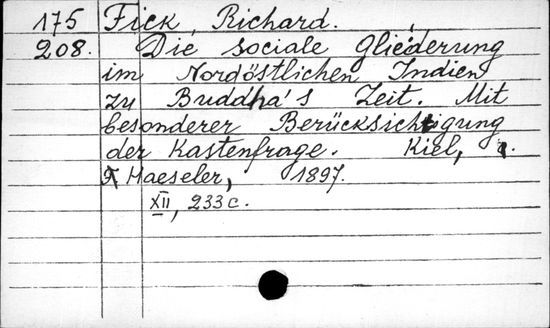 175 Fick, Richard.
208. Die sociale Gliederung
im Nordöstlichen Indien
zu Buddha's Zeit. Mit
besonderer Berücksichtigung
der Kastenfrage. Kiel,
Haeseler, 1897.
XII, 233 c.